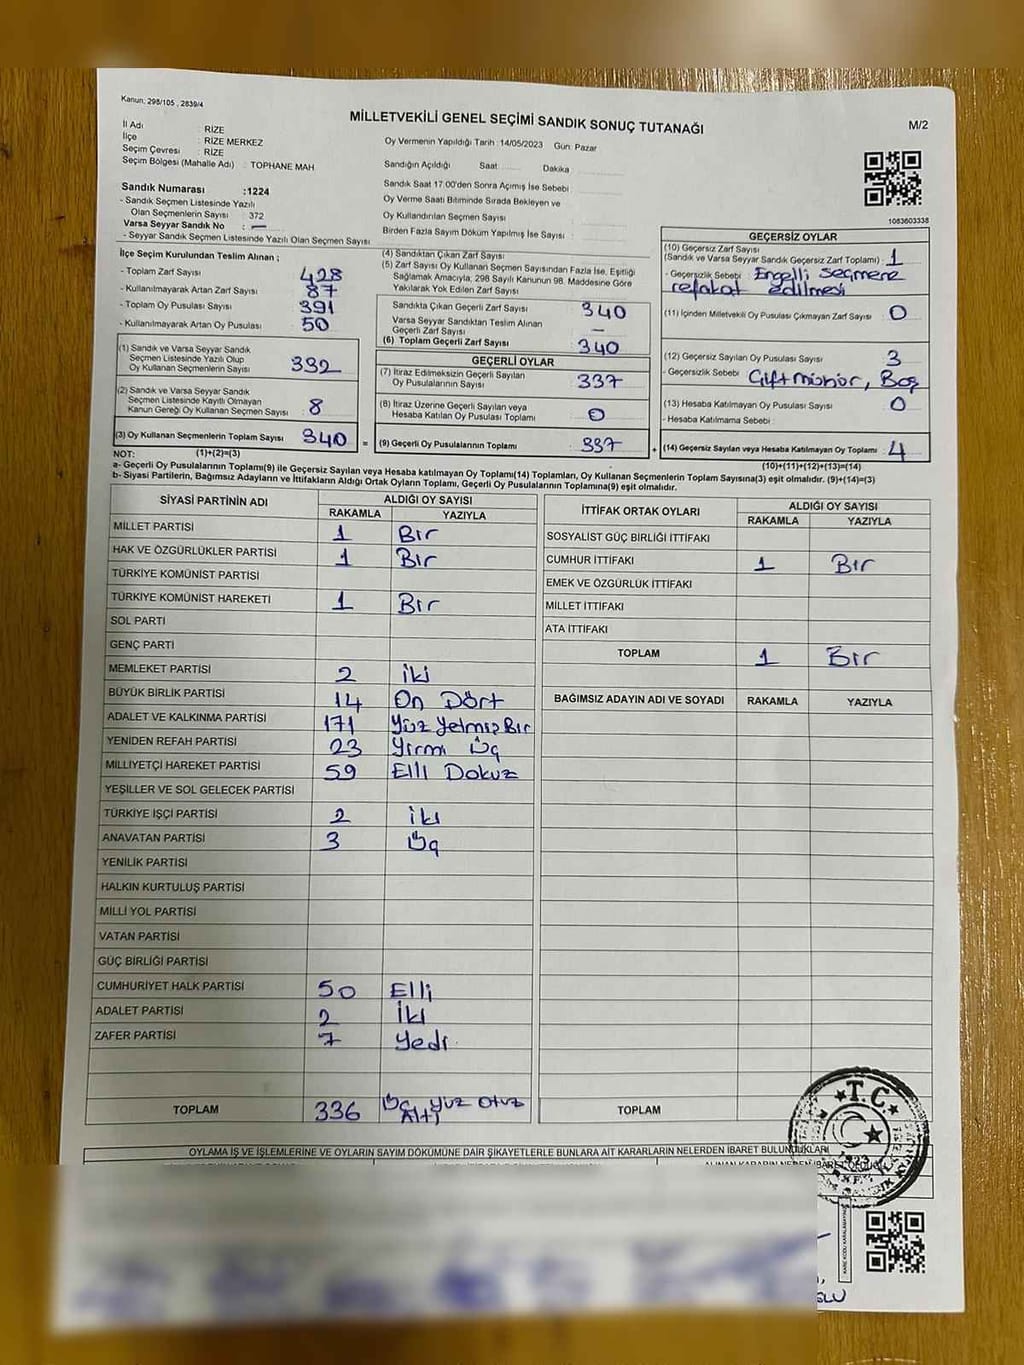 Kanun: 298/105 , 2839/4
MİLLETVEKİLİ GENEL SEÇİMİ SANDIK SONUÇ TUTANAĞI
M/2
İl Adı : RİZE
İlçe : RİZE MERKEZ
Seçim Çevresi : RİZE
Seçim Bölgesi (Mahalle Adı) : TOPHANE MAH
Oy Vermenin Yapıldığı Tarih : 14/05/2023 Gün: Pazar
Sandığın Açıldığı Saat: Dakika
Sandık Saat 17.00'den Sonra Açımış İse Sebebi
Oy Verme Saati Bitiminde Sırada Bekleyen ve
Oy Kullandırılan Seçmen Sayısı
Birden Fazla Sayım Döküm Yapılmış İse Sayısı :
Sandık Numarası : 1224
- Sandık Seçmen Listesinde Yazılı
Olan Seçmenlerin Sayısı : 372
Varsa Seyyar Sandık No : —
- Seyyar Sandık Seçmen Listesinde Yazılı Olan Seçmen Sayısı
1083603338
İlçe Seçim Kurulundan Teslim Alınan ;
- Toplam Zarf Sayısı : 428
- Kullanılmayarak Artan Zarf Sayısı : 87
- Toplam Oy Pusulası Sayısı : 391
- Kullanılmayarak Artan Oy Pusulası : 50
(1) Sandık ve Varsa Seyyar Sandık
Seçmen Listesinde Yazılı Olup
Oy Kullanan Seçmenlerin Sayısı : 332
(2) Sandık ve Varsa Seyyar Sandık
Seçmen Listesinde Kayıtlı Olmayan
Kanun Gereği Oy Kullanan Seçmen Sayısı : 8
(3) Oy Kullanan Seçmenlerin Toplam Sayısı : 340
(4) Sandıktan Çıkan Zarf Sayısı :
(5) Zarf Sayısı Oy Kullanan Seçmen Sayısından Fazla İse, Eşitliği
Sağlamak Amacıyla, 298 Sayılı Kanunun 98. Maddesine Göre
Yakılarak Yok Edilen Zarf Sayısı
Sandıkta Çıkan Geçerli Zarf Sayısı : 340
Varsa Seyyar Sandıktan Teslim Alınan
Geçerli Zarf Sayısı : —
(6) Toplam Geçerli Zarf Sayısı : 340
GEÇERLİ OYLAR
(7) İtiraz Edilmeksizin Geçerli Sayılan
Oy Pusulalarının Sayısı : 337
(8) İtiraz Üzerine Geçerli Sayılan veya
Hesaba Katılan Oy Pusulası Toplamı : 0
= (9) Geçerli Oy Pusulalarının Toplamı : 337
GEÇERSİZ OYLAR
(10) Geçersiz Zarf Sayısı
(Sandık ve Varsa Seyyar Sandık Geçersiz Zarf Toplamı) : 1
- Geçersizlik Sebebi : Engelli seçmene
refakat edilmesi
(11) İçinden Milletvekili Oy Pusulası Çıkmayan Zarf Sayısı : 0
(12) Geçersiz Sayılan Oy Pusulası Sayısı : 3
- Geçersizlik Sebebi : Çift mühür, Boş
(13) Hesaba Katılmayan Oy Pusulası Sayısı : 0
- Hesaba Katılmama Sebebi :
+ (14) Geçersiz Sayılan veya Hesaba Katılmayan Oy Toplamı : 4
NOT: (1)+(2)=(3)
(10)+(11)+(12)+(13)=(14)
a- Geçerli Oy Pusulalarının Toplamı(9) ile Geçersiz Sayılan veya Hesaba katılmayan Oy Toplamı(14) Toplamları, Oy Kullanan Seçmenlerin Toplam Sayısına(3) eşit olmalıdır. (9)+(14)=(3)
b- Siyasi Partilerin, Bağımsız Adayların ve İttifakların Aldığı Ortak Oyların Toplamı, Geçerli Oy Pusulalarının Toplamına(9) eşit olmalıdır.
SİYASİ PARTİNİN ADI ALDIĞI OY SAYISI
RAKAMLA YAZIYLA
MİLLET PARTİSİ 1 Bir
HAK VE ÖZGÜRLÜKLER PARTİSİ 1 Bir
TÜRKİYE KOMÜNİST PARTİSİ
TÜRKİYE KOMÜNİST HAREKETİ 1 Bir
SOL PARTİ
GENÇ PARTİ
MEMLEKET PARTİSİ 2 iki
BÜYÜK BİRLİK PARTİSİ 14 On Dört
ADALET VE KALKINMA PARTİSİ 171 Yüz Yetmiş Bir
YENİDEN REFAH PARTİSİ 23 Yirmi Üç
MİLLİYETÇİ HAREKET PARTİSİ 59 Elli Dokuz
YEŞİLLER VE SOL GELECEK PARTİSİ
TÜRKİYE İŞÇİ PARTİSİ 2 İki
ANAVATAN PARTİSİ 3 Üç
YENİLİK PARTİSİ
HALKIN KURTULUŞ PARTİSİ
MİLLİ YOL PARTİSİ
VATAN PARTİSİ
GÜÇ BİRLİĞİ PARTİSİ
CUMHURİYET HALK PARTİSİ 50 Elli
ADALET PARTİSİ 2 İki
ZAFER PARTİSİ 7 Yedi
TOPLAM 336 Üç Yüz Otuz
Altı
İTTİFAK ORTAK OYLARI ALDIĞI OY SAYISI
RAKAMLA YAZIYLA
SOSYALİST GÜÇ BİRLİĞİ İTTİFAKI
CUMHUR İTTİFAKI 1 Bir
EMEK VE ÖZGÜRLÜK İTTİFAKI
MİLLET İTTİFAKI
ATA İTTİFAKI
TOPLAM 1 Bir
BAĞIMSIZ ADAYIN ADI VE SOYADI RAKAMLA YAZIYLA
TOPLAM
T.C.
1923
OYLAMA İŞ VE İŞLEMLERİNE VE OYLARIN SAYIM DÖKÜMÜNE DAİR ŞİKAYETLERLE BUNLARA AİT KARARLARIN NELERDEN İBARET BULUNDUKLARI